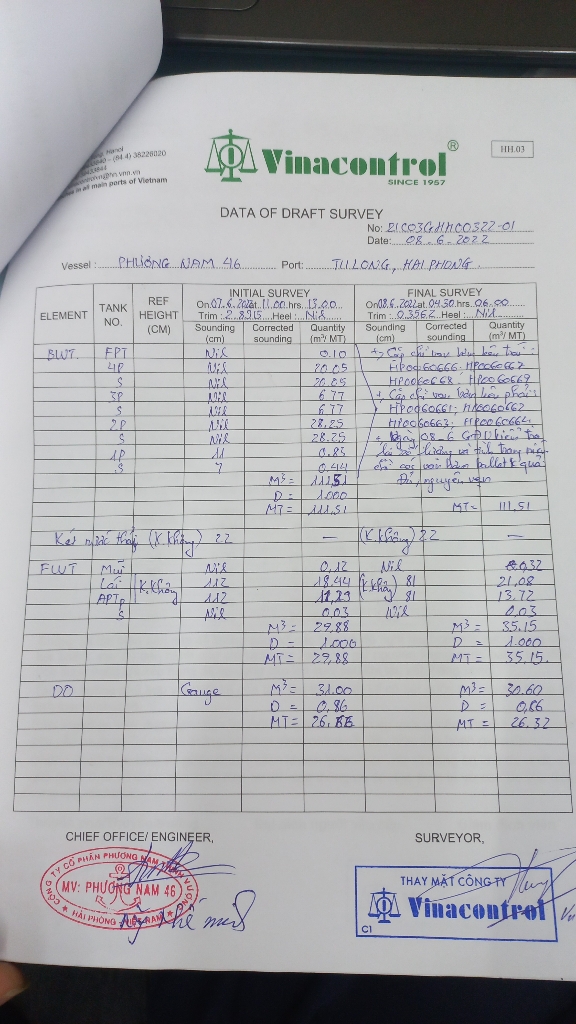 Hanoi
(84.4) 38226020
in all main ports of Vietnam
Vinacontrol®
SINCE 1957
HH.03
DATA OF DRAFT SURVEY
No: 21C03GHH00322-01
Date: 08.6.2022
Vessel: PHƯƠNG NAM 46 Port: TU LONG, HAI PHONG.
ELEMENT TANK NO. REF HEIGHT (CM) INITIAL SURVEY FINAL SURVEY
On 07.6.2022 at 11.00 hrs. 13.00 On 08.6.2022 at 04.30 hrs. 06.00
Trim: 2.8915 Heel: Nil Trim: 0.3562 Heel: Nil
Sounding (cm) Corrected sounding Quantity (m³/ MT) Sounding (cm) Corrected sounding Quantity (m³/ MT)
BLWT. FPT Nil 0.10
4P Nil 20.05 HP0060666; HP0060667
S Nil 20.05 HP0060668; HP0060669
3P Nil 6.77
S Nil 6.77 HP0060661; HP0060662
2P Nil 28.25 HP0060663; HP0060664
S Nil 28.25
1P 11 0.83
S 7 0.44
M³ = 111.51
D = 1.000
MT = 111.51 MT = 111.51
Két nước thải (K.không) 22 — (K.không) 22 —
FWT Mũi Nil 0.12 Nil 0.32
Lái K.không 112 18.44 (K.không) 81 21.08
APT P 112 81 13.72
S Nil 0.03 Nil 0.03
M³ = 29.88 M³ = 35.15
D = 1.000 D = 1.000
MT = 29.88 MT = 35.15.
DO Gauge M³ = 31.00 M³ = 30.60
D = 0,86 D = 0,86
MT = 26.66 MT = 26.32
CHIEF OFFICE/ ENGINEER, SURVEYOR,
CÔNG TY CỔ PHẦN PHƯƠNG NAM THỊNH VƯỢNG
MV: PHƯƠNG NAM 46
HẢI PHÒNG - VIỆT NAM
THAY MẶT CÔNG TY
Vinacontrol
C1